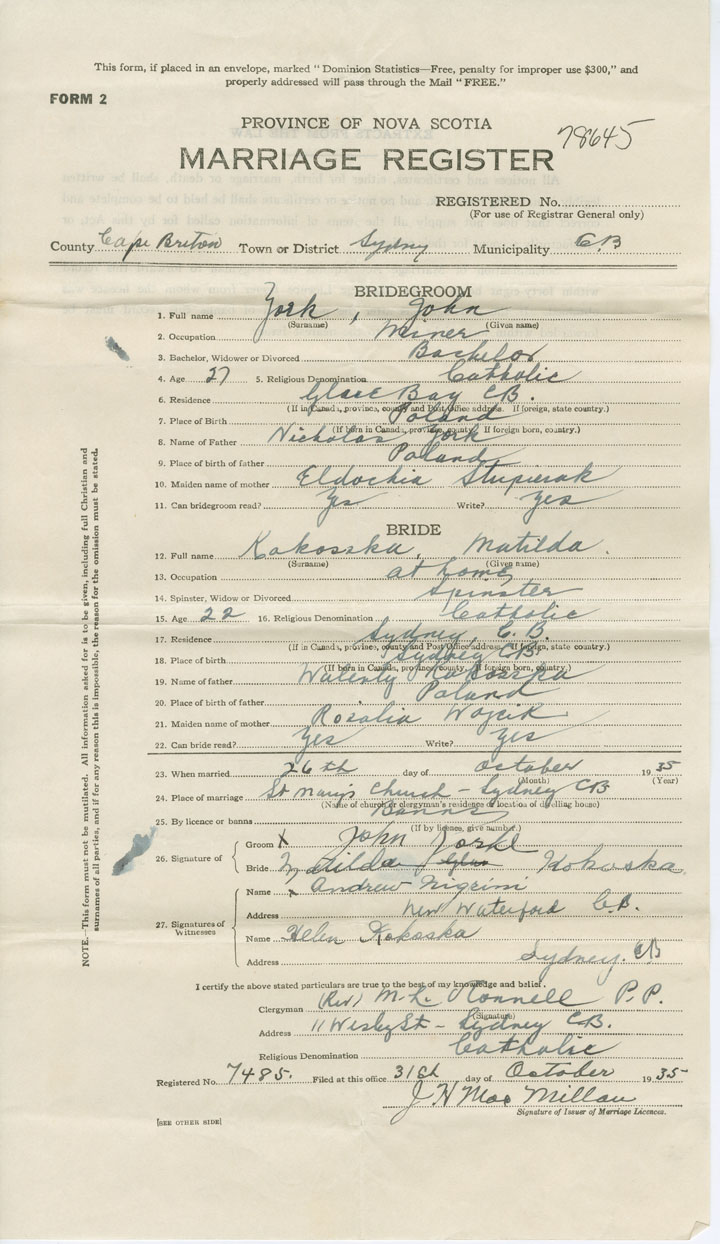 This form, if placed in an envelope, marked "Dominion Statistics—Free, penalty for improper use $300," and
properly addressed will pass through the Mail "FREE."
FORM 2
PROVINCE OF NOVA SCOTIA
78645
MARRIAGE REGISTER
REGISTERED No.
(For use of Registrar General only)
County Cape Breton Town or District Sydney Municipality C.B
BRIDEGROOM
1. Full name York, John
(Surname) (Given name)
2. Occupation Miner
3. Bachelor, Widower or Divorced Bachelor
4. Age 27 5. Religious Denomination Catholic
6. Residence Glace Bay C.B.
(If in Canada, province, county and Post Office address. If foreign, state country.)
7. Place of Birth Poland
(If born in Canada, province, county. If foreign born, country.)
8. Name of Father Nicholas York
9. Place of birth of father Poland
10. Maiden name of mother Eldochia Stupierak
11. Can bridegroom read? Yes Write? Yes
BRIDE
12. Full name Kokoszka, Matilda.
(Surname) (Given name)
13. Occupation at home
14. Spinster, Widow or Divorced Spinster
15. Age 22 16. Religious Denomination Catholic
17. Residence Sydney, C.B.
(If in Canada, province, county and Post Office address. If foreign, state country.)
18. Place of birth Sydney CB
(If born in Canada, province, county. If foreign born, country.)
19. Name of father Kokoszka
20. Place of birth of father Poland
21. Maiden name of mother Rozalia Wojcik
22. Can bride read? Yes Write? Yes
23. When married 26th day of October 1935
(Month) (Year)
24. Place of marriage St Mary's Church - Sydney CB
(Name of church or clergyman's residence or location of dwelling house)
25. By licence or banns Banns
(If by licence, give number.)
26. Signature of
Groom X John
Bride Matilda Kokoska
27. Signatures of Witnesses
Name x Andrew Nigrini
Address New Waterford C.B.
Name Helen Kokoska
Address Sydney. CB
I certify the above stated particulars are true to the best of my knowledge and belief.
Clergyman (Rev) M. L. P.P.
(Signature)
Address 11 Wesley St - Sydney C.B.
Religious Denomination Catholic
Registered No. 7485. Filed at this office 31st day of October 1935
J H Mac Millan
Signature of Issuer of Marriage Licences.
[SEE OTHER SIDE]
NOTE.—This form must not be mutilated. All information asked for is to be given, including full Christian and
surnames of all parties, and if for any reason this is impossible, the reason for the omission must be stated.